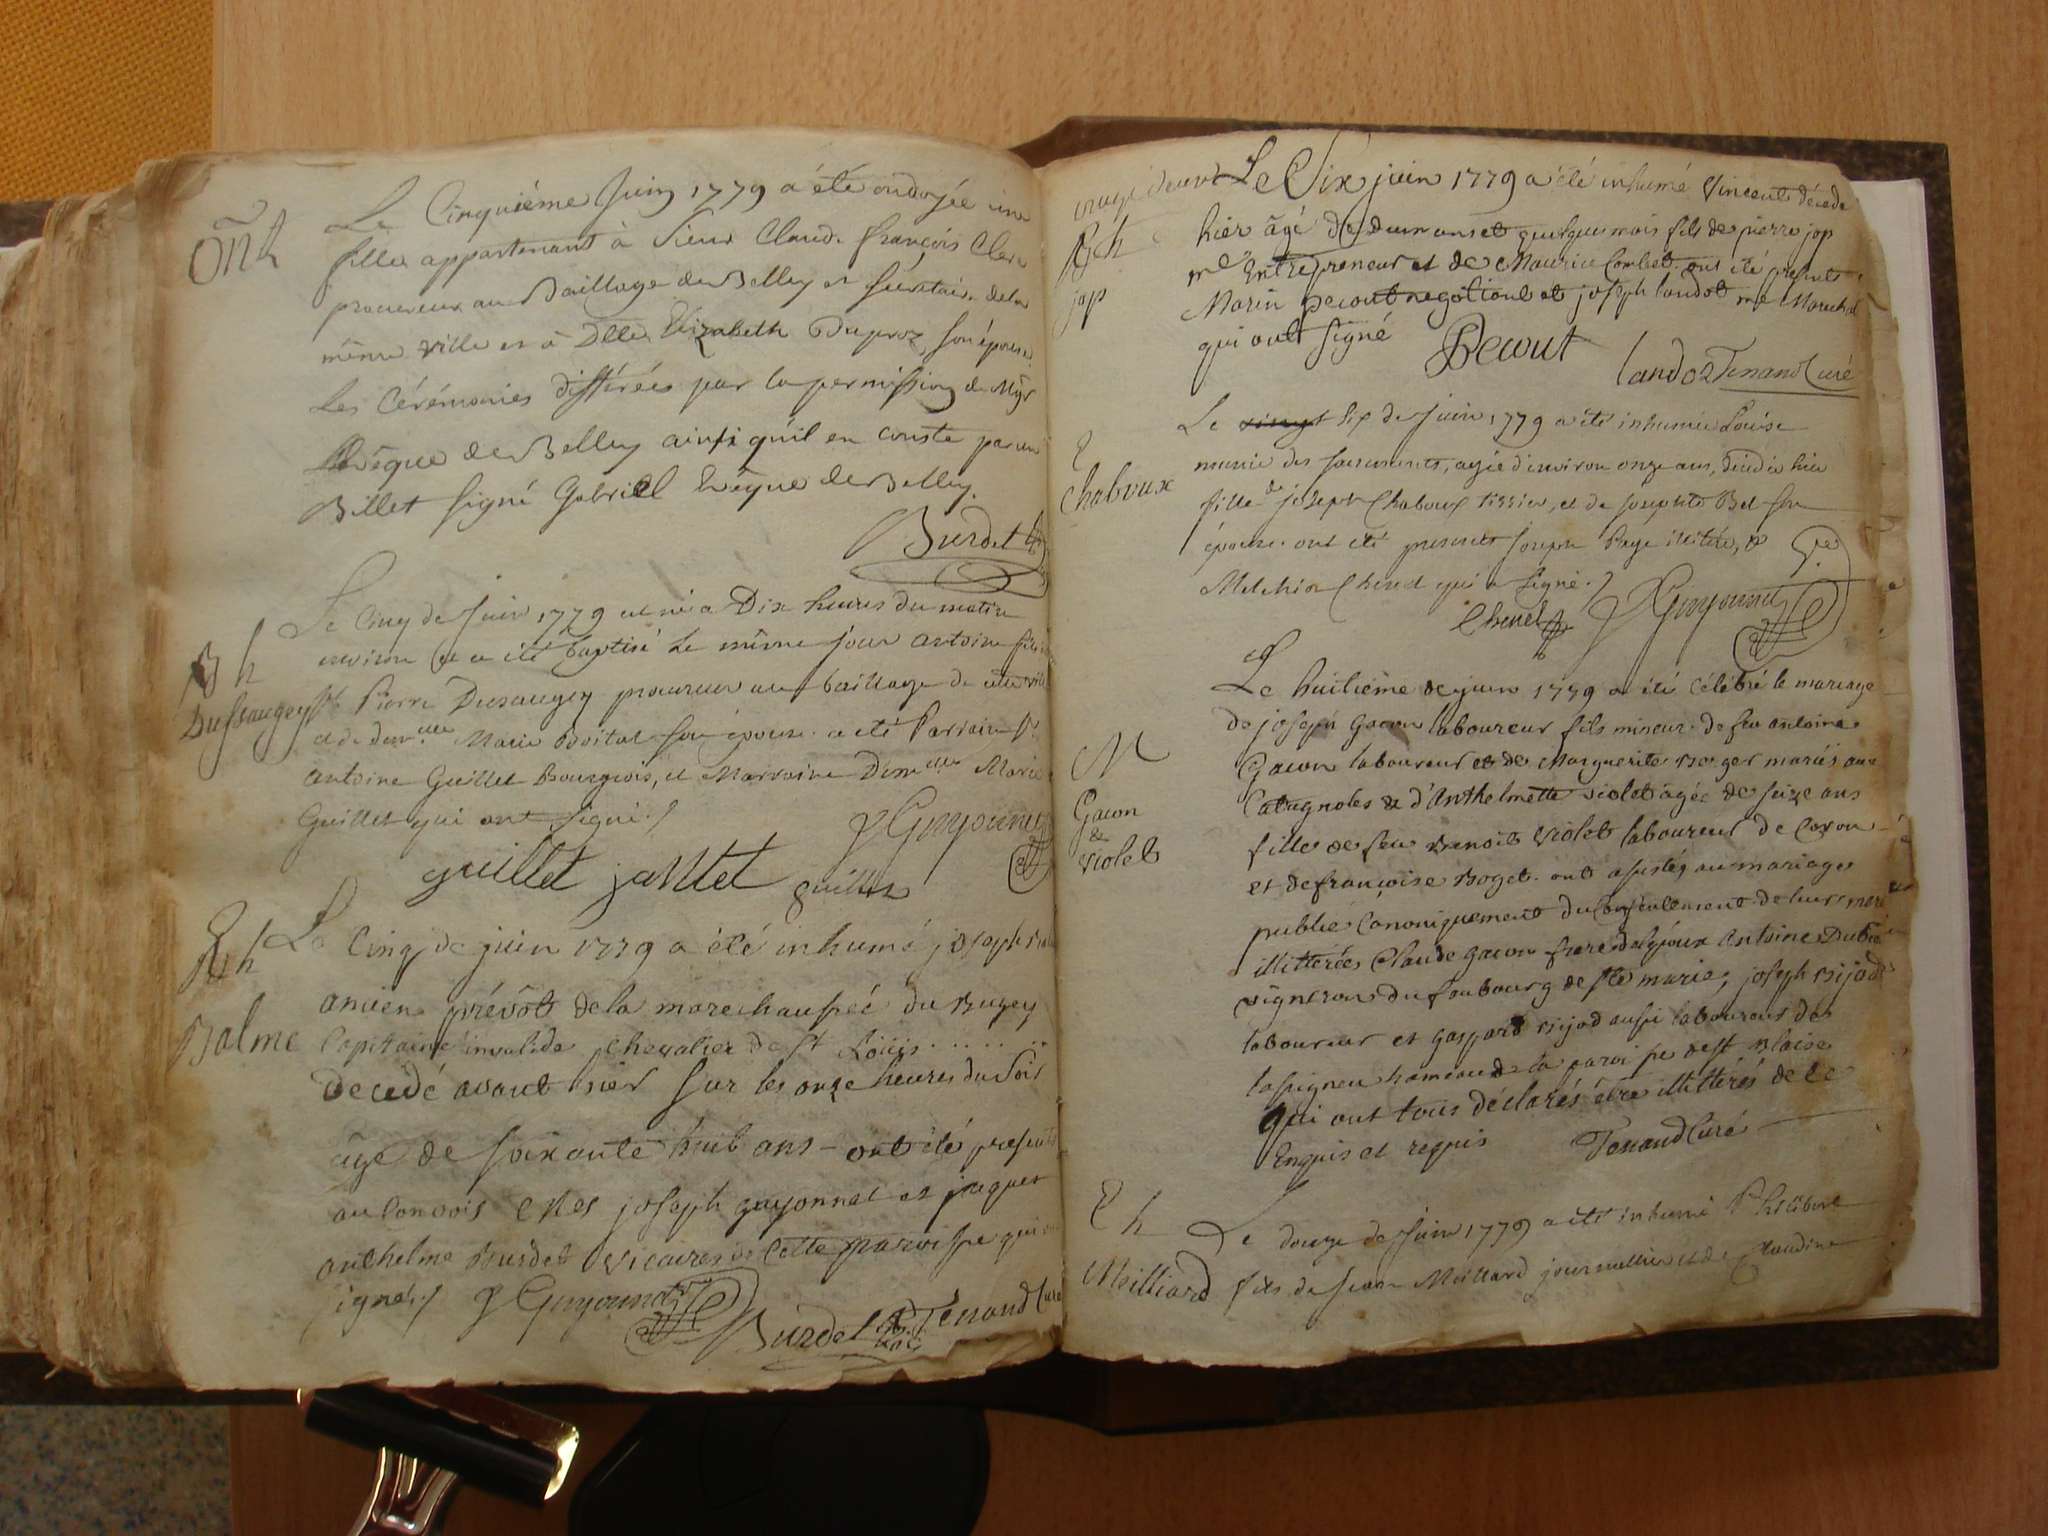 Le Cinquiéme Juin 1779 a été ondoyée une
fille appartenant à Sieur Claude françois Clerc
procureur au Baillage de Belley et sécrétaire de la
même ville et à Dlle Elizabeth Duproz son épouse
Les Cérémonies différées par la permission de Mgr
Evêque de Belley ainsi qu'il en conste par un
Billet signé Gabriel Evêque de Belley.
Burdet
Le Cinq de Juin 1779 est né a Dix heures du matin
environ et a été baptisé le même jour antoine fils
Pierre Dusaugey procureur au baillage de cette ville
Dussaugey
et de dem.elle Marie Boital son épouse. a été Parrain Sr
antoine Guillet Bourgeois, et Marraine Dem.elle Marie
Guillet qui ont signé./
J Guyonnet
guillet jantet guillet
Le Cinq de juin 1779 a été inhumé joseph
ancien prévôt de la marechaussée du Bugey
Balme
Capitaine invalide chevalier de st Loüis
Decedé avant hier sur les onze heures du soir
âgé de soixante huit ans - ont été present
au Convois Mes joseph guyonnet et jaques
anthelme Burdet vicaires de Cette paroisse qui
signé./ J Guyonnet
Burdet Tenand Curé
Le Six juin 1779 a été inhumé Vincent décédé
hier âgé de deux ans et quelques mois fils de pierre jop
jop
me Entrepreneur et de Maurice Combet. ont été présents
Marin Decout negotiant et joseph landoz me Marechal
qui ont signé
Decout
landoz Tenand Curé
Le vingt six de Juin 1779 a été inhumée Loüise
munie des sacrements, agée d'environ onze ans, décédée hier
Chaboux
fille de joseph Chaboux tissier, et de josephte Bel son
épouse. ont été presents joseph Page illitéré, et
Melchior Chenel qui a signé./
Chenel J Guyonnet
Le huitiême de juin 1779 a été Célébré le mariage
de joseph Gacon laboureur fils mineur de feu antoine
M
Gacon laboureur et de Marguerite Berger mariés aux
Catagnoles & d'Anthelmette violet âgée de seize ans
Gacon
&
violet
fille de feu Benoit violet laboureur de Coron
et de françoise Boget. ont assistés au mariage
publié Canoniquement du Consentement de leurs meres
illitterées Claude gacon frere de l'époux Antoine Dubois
vigneron du faubourg de ste marie, joseph Rijod
laboureur et gaspard Rijod aussi laboureur de
lassigneu hameau de la paroisse de st Blaise
qui ont tous déclarés être illitterés de ce
Enquis et requis Tenand Curé
Le douze de Juin 1779 a été inhumé Philibert
Meilliard
fils de Jean Meillard journallier et de Claudine